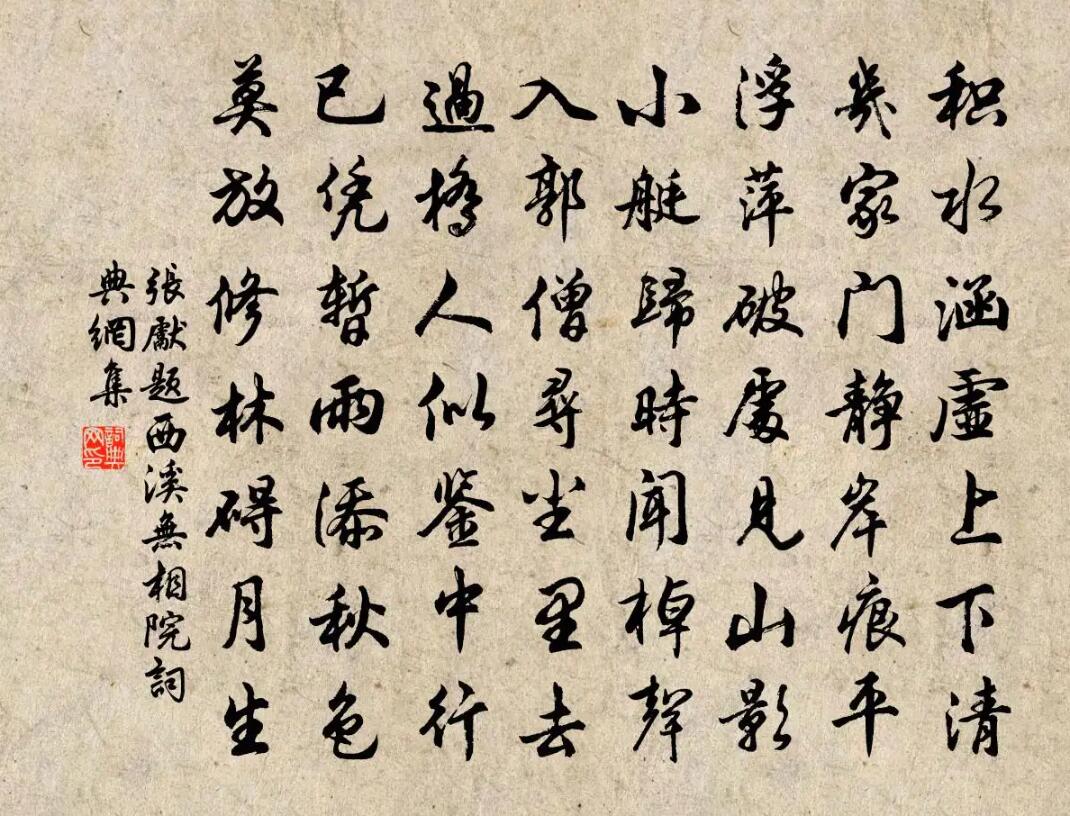 积水涵虚上下清
幾家门静岸痕平
浮萍破處见山影
小艇歸時闻棹聲
入郭僧尋尘里去
過橋人似鉴中行
已凭暫雨添秋色
莫放修林碍月生
張先題西溪無相院詞
典網集
詞典網印